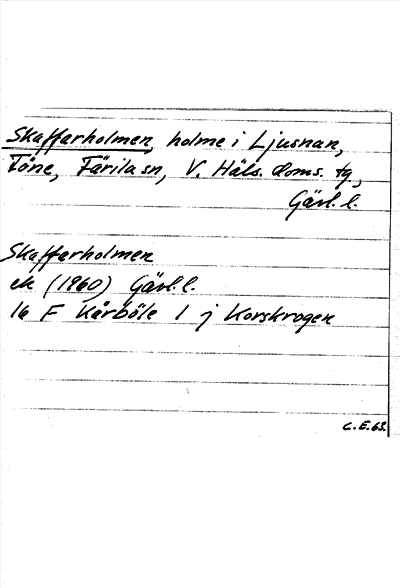 Skaffarholmen, holme i Ljusnan,
Föne, Färila sn, V. Häls. doms. tg,
Gävl. l.
Skaffarholmen
ek (1960) Gävl. l.
16 F Kårböle 1 j Korskrogen
C.E.63.